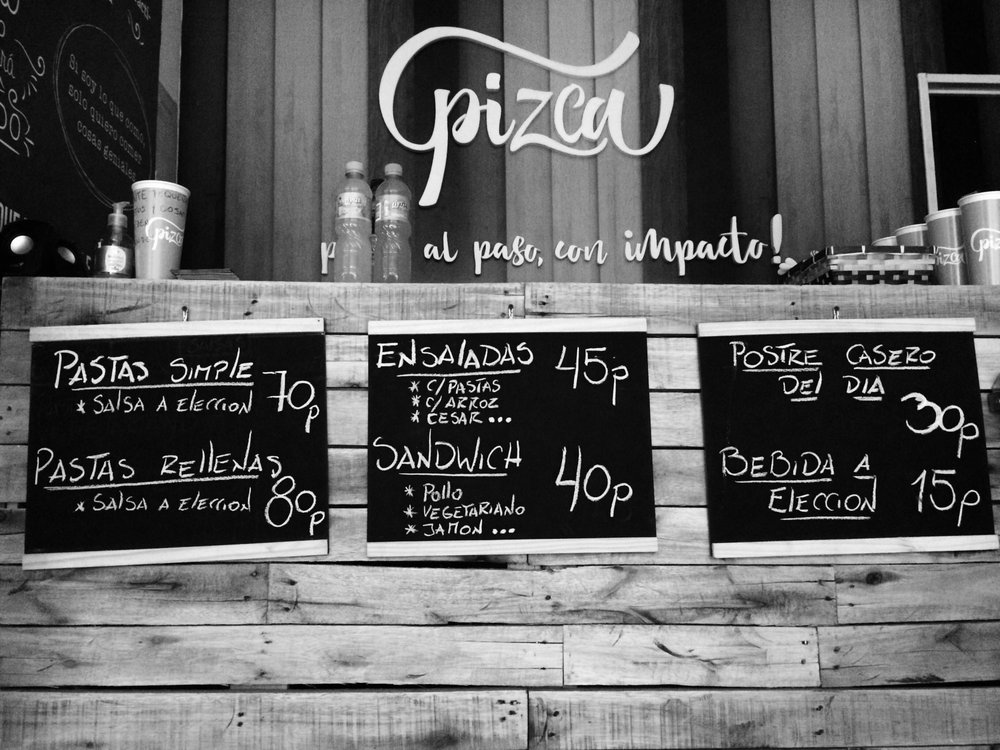 Si soy lo que como,
solo quiero comer
cosas geniales
pizca
al paso, con impacto!
pizca
pizca
pizca
PASTAS SIMPLE 70p
* SALSA A ELECCION
PASTAS RELLENAS 80p
* SALSA A ELECCION
ENSALADAS 45p
* C/PASTAS
* C/ARROZ
* CESAR ...
SANDWICH 40p
* POLLO
* VEGETARIANO
* JAMON ...
POSTRE CASERO
DEL DIA
30p
BEBIDA A
ELECCION 15p